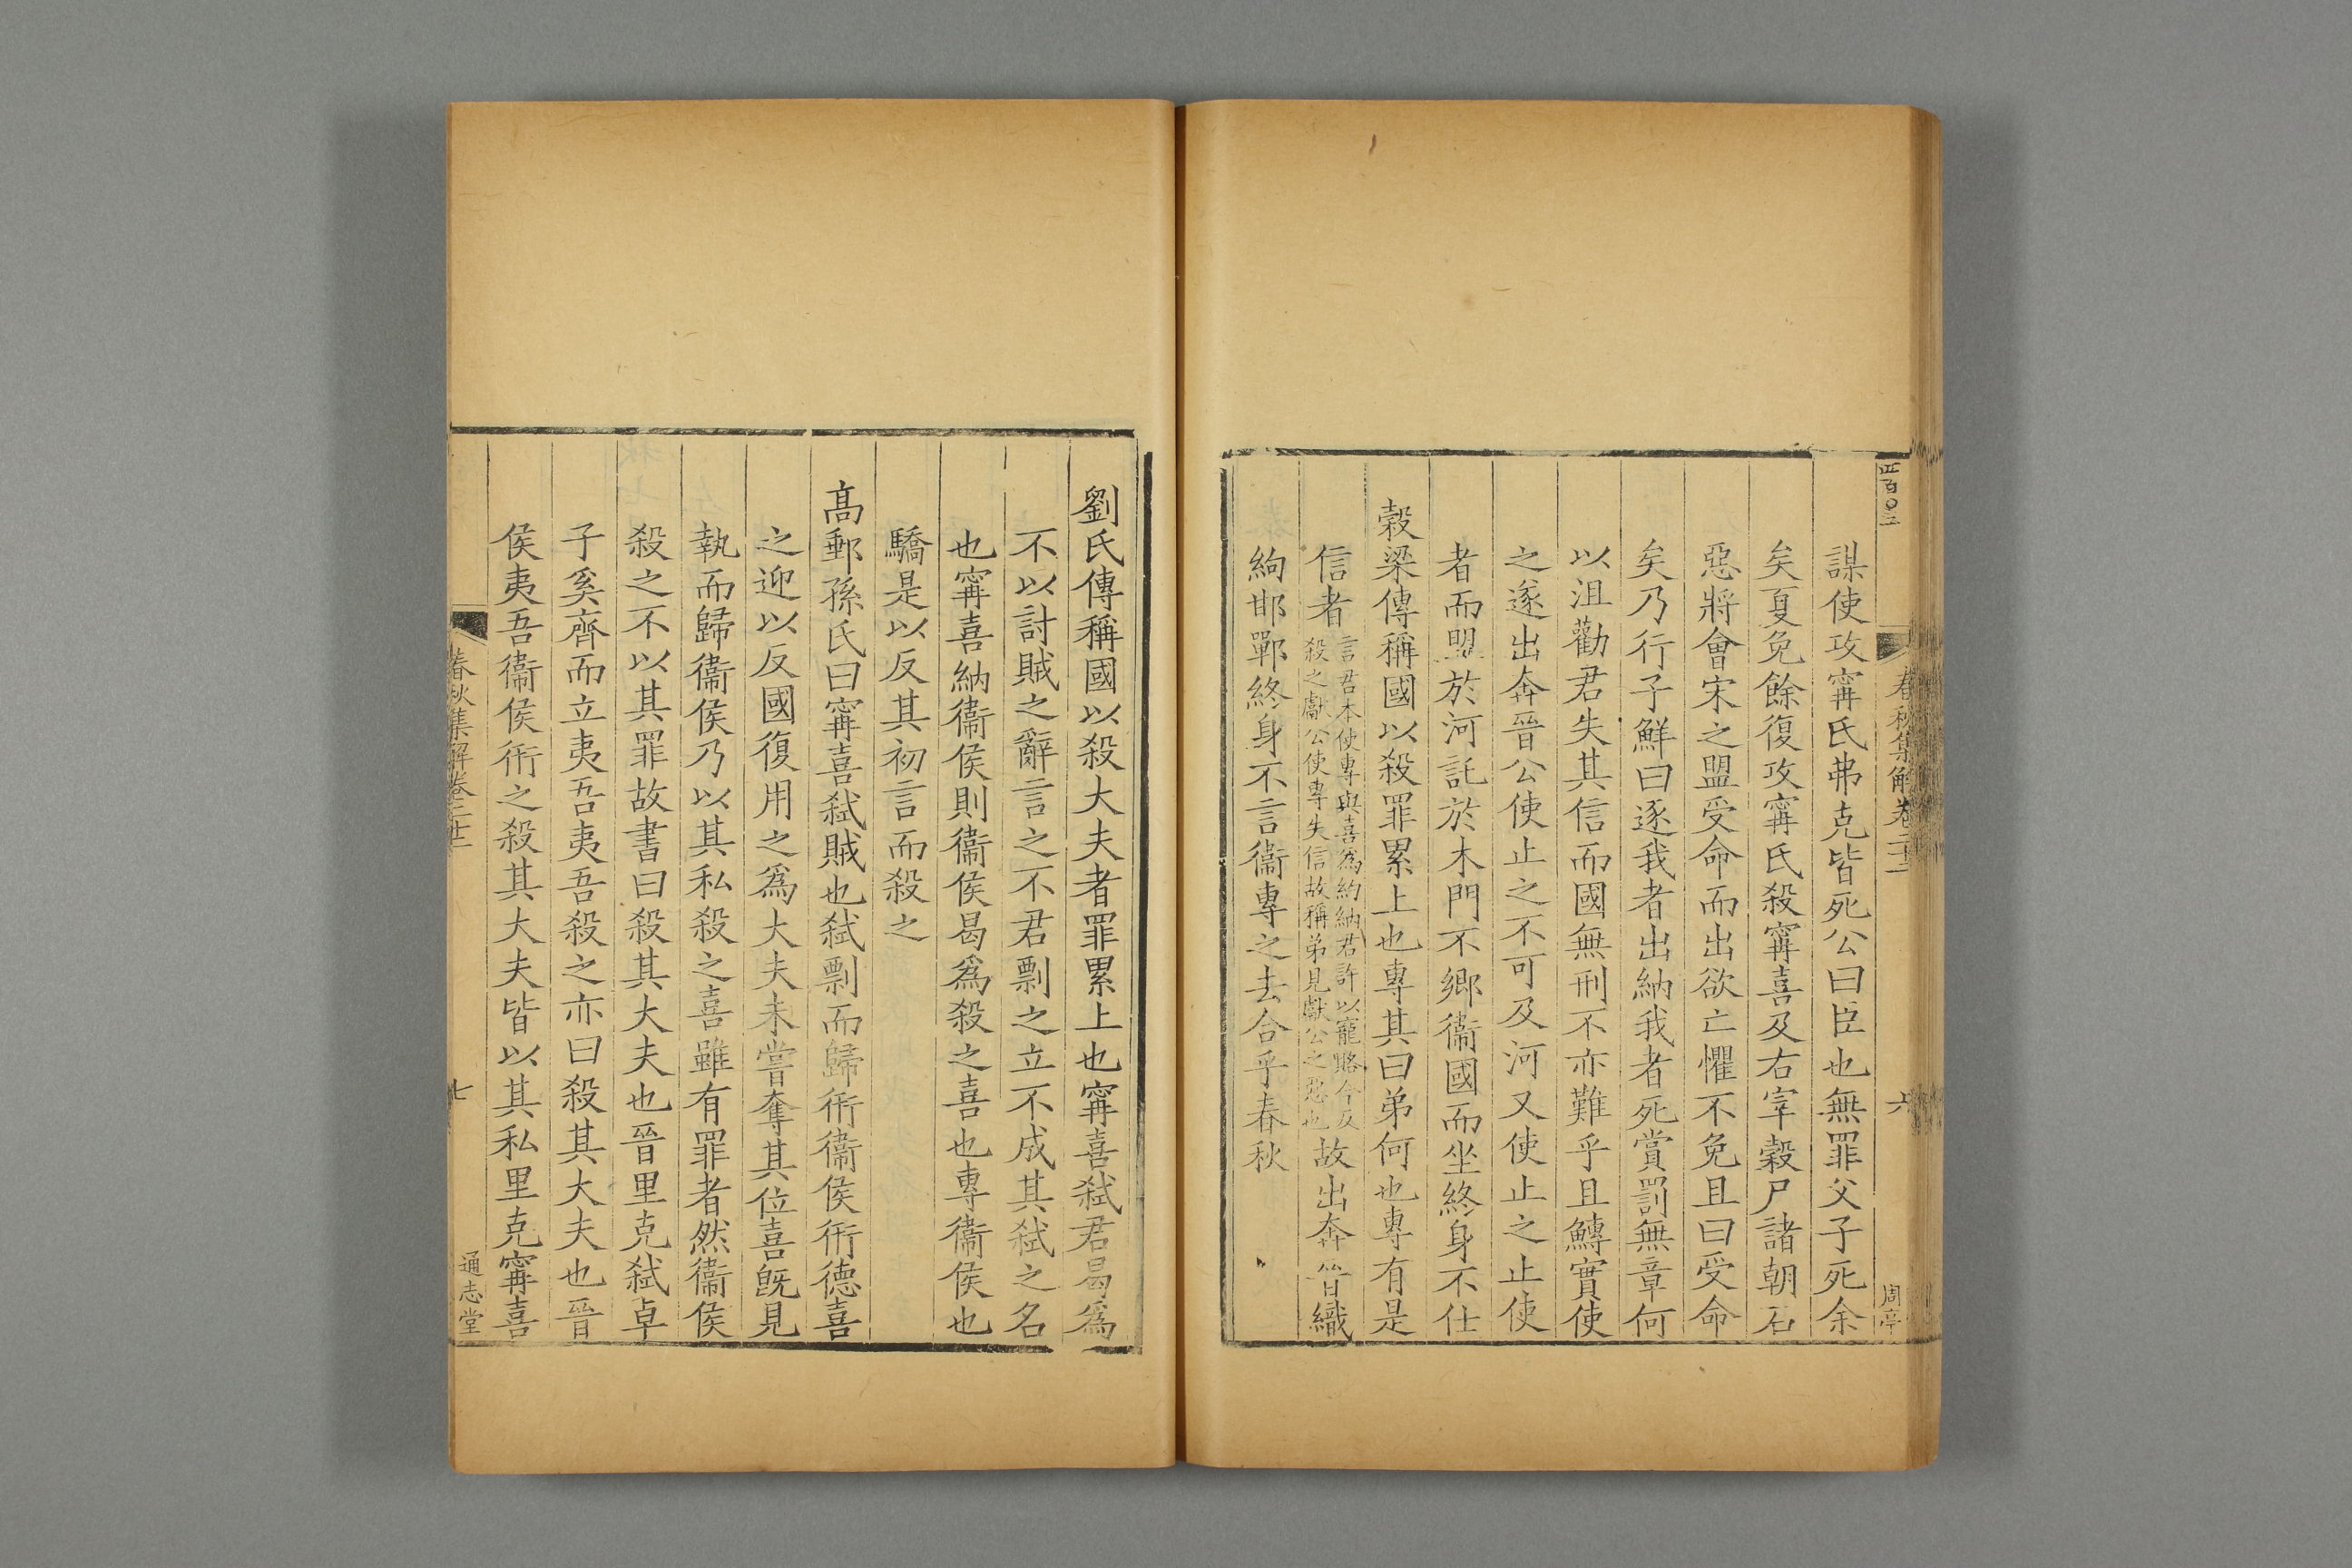 四百〇三
春秋集解卷二十二
六
周亭
謀使攻甯氏弗克皆死公曰臣也無罪父子死余
矣夏免餘復攻甯氏殺甯喜及右宰穀尸諸朝石
惡將會宋之盟受命而出欲亡懼不免且曰受命
矣乃行子鮮曰逐我者出納我者死賞罰無章何
以沮勸君失其信而國無刑不亦難乎且鱄實使
之遂出奔晉公使止之不可及河又使止之止使
者而盟於河託於木門不鄉衞國而坐終身不仕
穀梁傳稱國以殺罪累上也專其曰弟何也專有是
信者言君本使專與喜為約納君許以寵賂今反殺之獻公使專失信故稱弟見獻公之惡也故出奔晉織
絇邯鄲終身不言衞專之去合乎春秋
劉氏傳稱國以殺大夫者罪累上也甯喜弑君曷為
不以討賊之辭言之不君剽之立不成其弑之名
也甯喜納衞侯則衞侯曷為殺之喜也專衞侯也
驕是以反其初言而殺之
高郵孫氏曰甯喜弑賊也弑剽而歸衎衞侯衎德喜
之迎以反國復用之為大夫未嘗奪其位喜旣見
執而歸衞侯乃以其私殺之喜雖有罪者然衞侯
殺之不以其罪故書曰殺其大夫也晉里克弑卓
子奚齊而立夷吾夷吾殺之亦曰殺其大夫也晉
侯夷吾衞侯衎之殺其大夫皆以其私里克甯喜
春秋集解卷二十二
七
通志堂